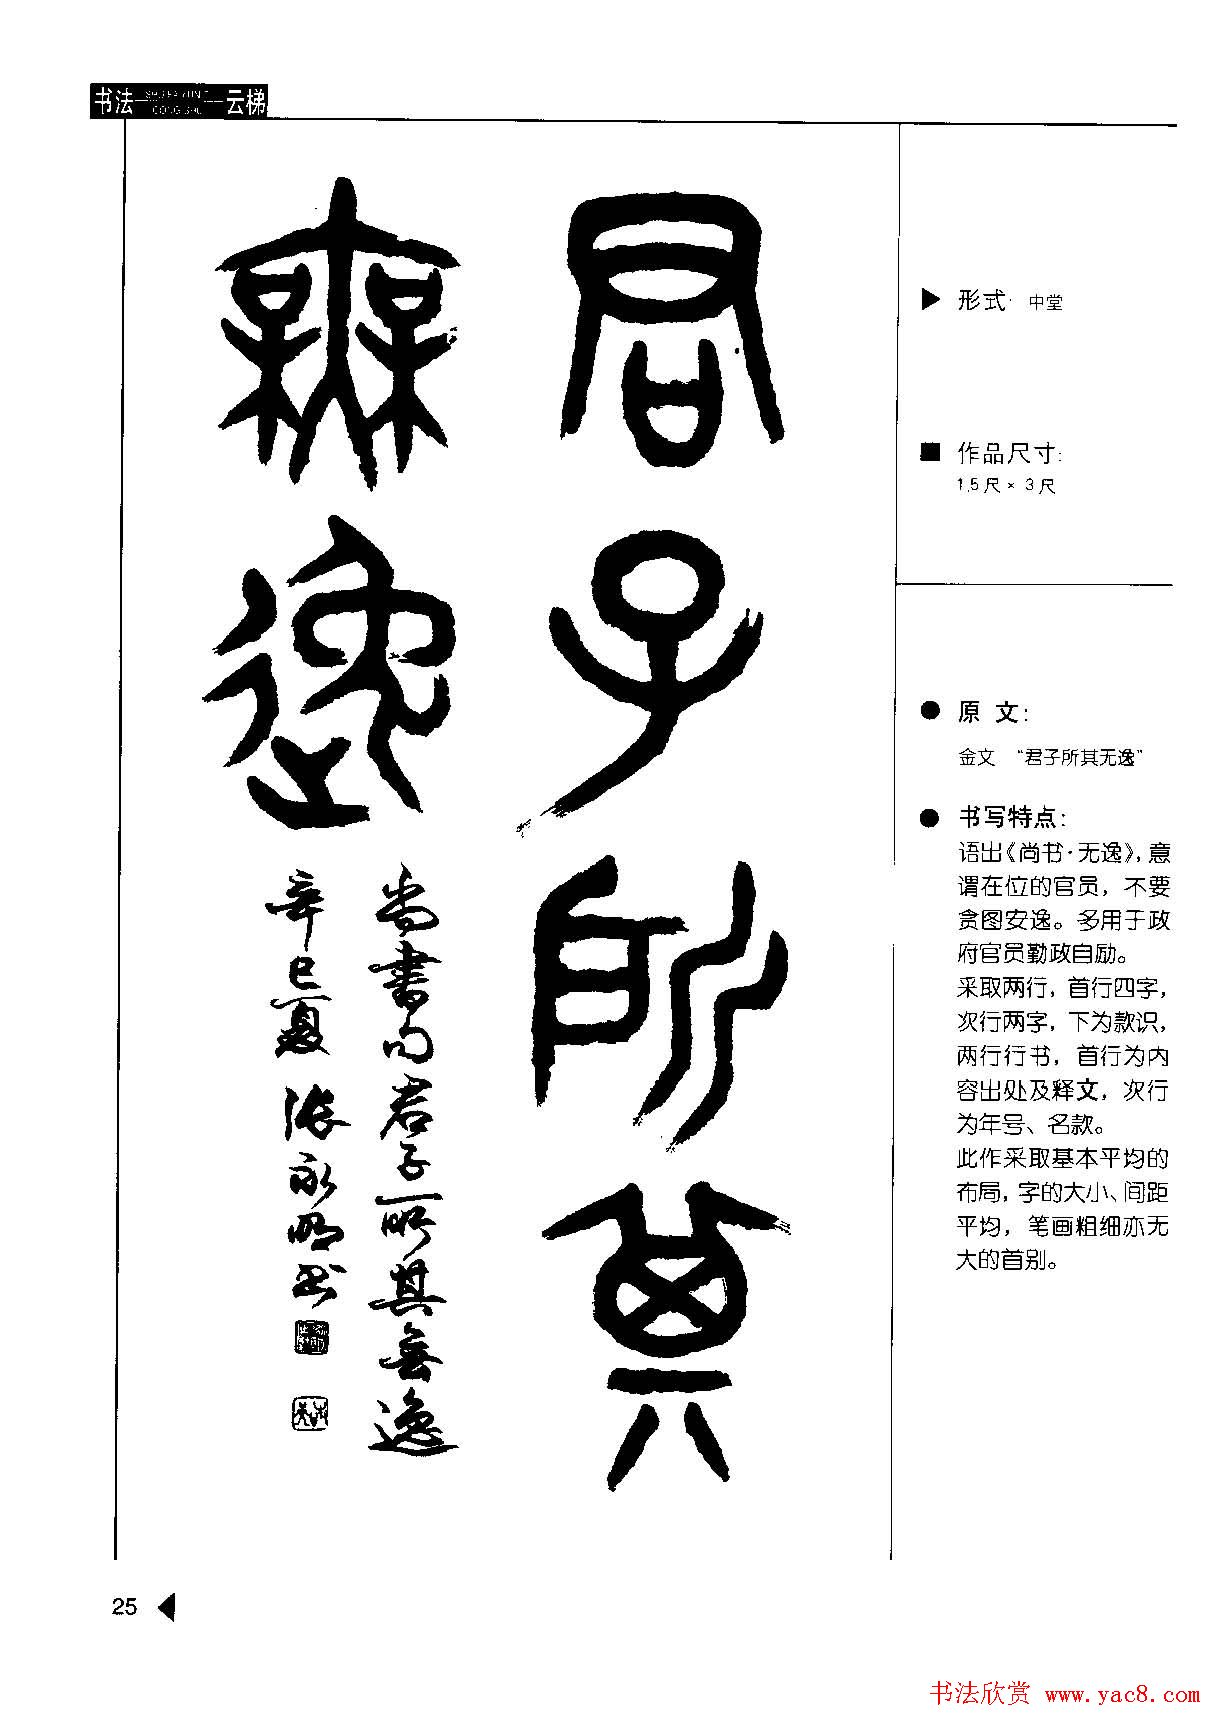 书法 云梯
君子所其
無逸
尚書句君子所其無逸
辛巳夏 张永明书
形式· 中堂
作品尺寸:
1.5尺× 3尺
原 文:
金文 “君子所其无逸”
书写特点:
语出《尚书·无逸》,意
谓在位的官员，不要
贪图安逸。多用于政
府官员勤政自励。
采取两行，首行四字，
次行两字，下为款识，
两行行书，首行为内
容出处及释文，次行
为年号、名款。
此作采取基本平均的
布局，字的大小、间距
平均，笔画粗细亦无
大的首别。
25
书法欣赏 www.yac8.com